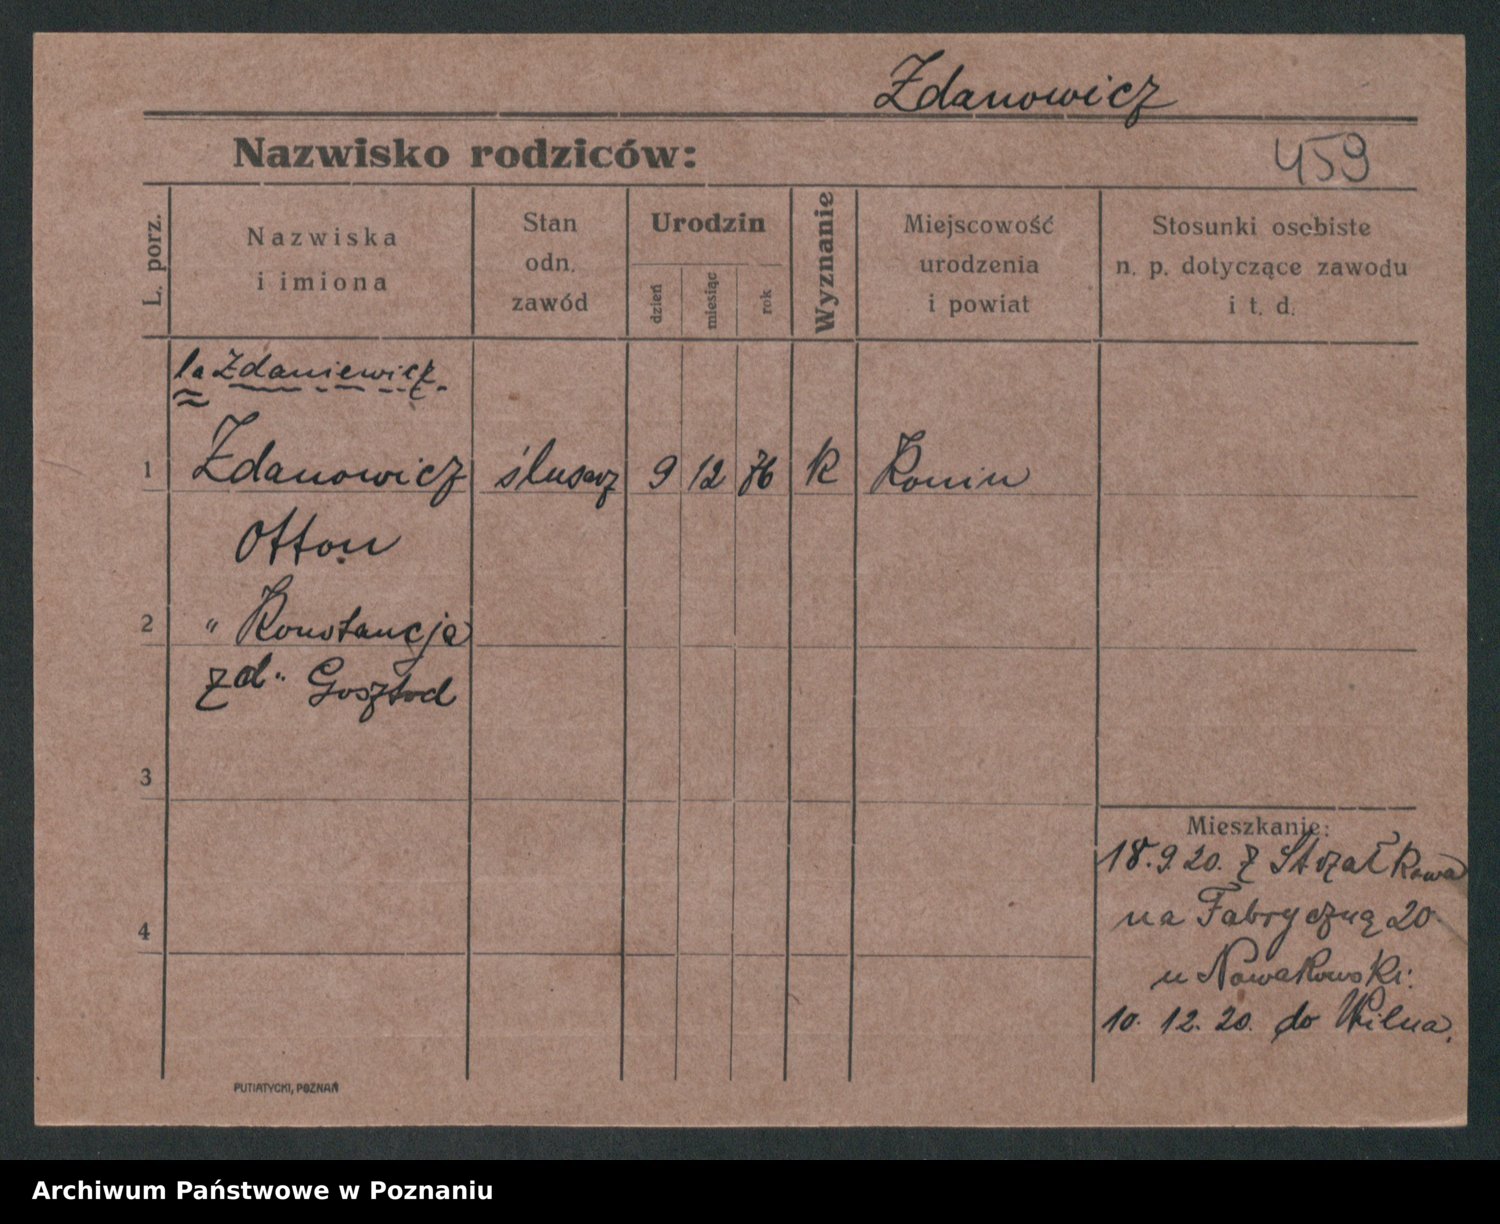 Zdanowicz
Nazwisko rodziców:
459
L. porz.
Nazwiska
i imiona
Stan
odn.
zawód
Urodzin
dzień
miesiąc
rok
Wyznanie
Miejscowość
urodzenia
i powiat
Stosunki osobiste
n. p. dotyczące zawodu
i t. d.
1a Zdaniewicz
1 Zdanowicz ślusarz 9 12 76 k Konin
Otton
2 " Konstancja
zd. Gosztod
3
4
Mieszkanie:
18.9.20. z Strzałkowa
na Fabryczną 20
u Nowakowski.
10. 12. 20. do Wilna.
PUTIATYCKI, POZNAŃ
Archiwum Państwowe w Poznaniu